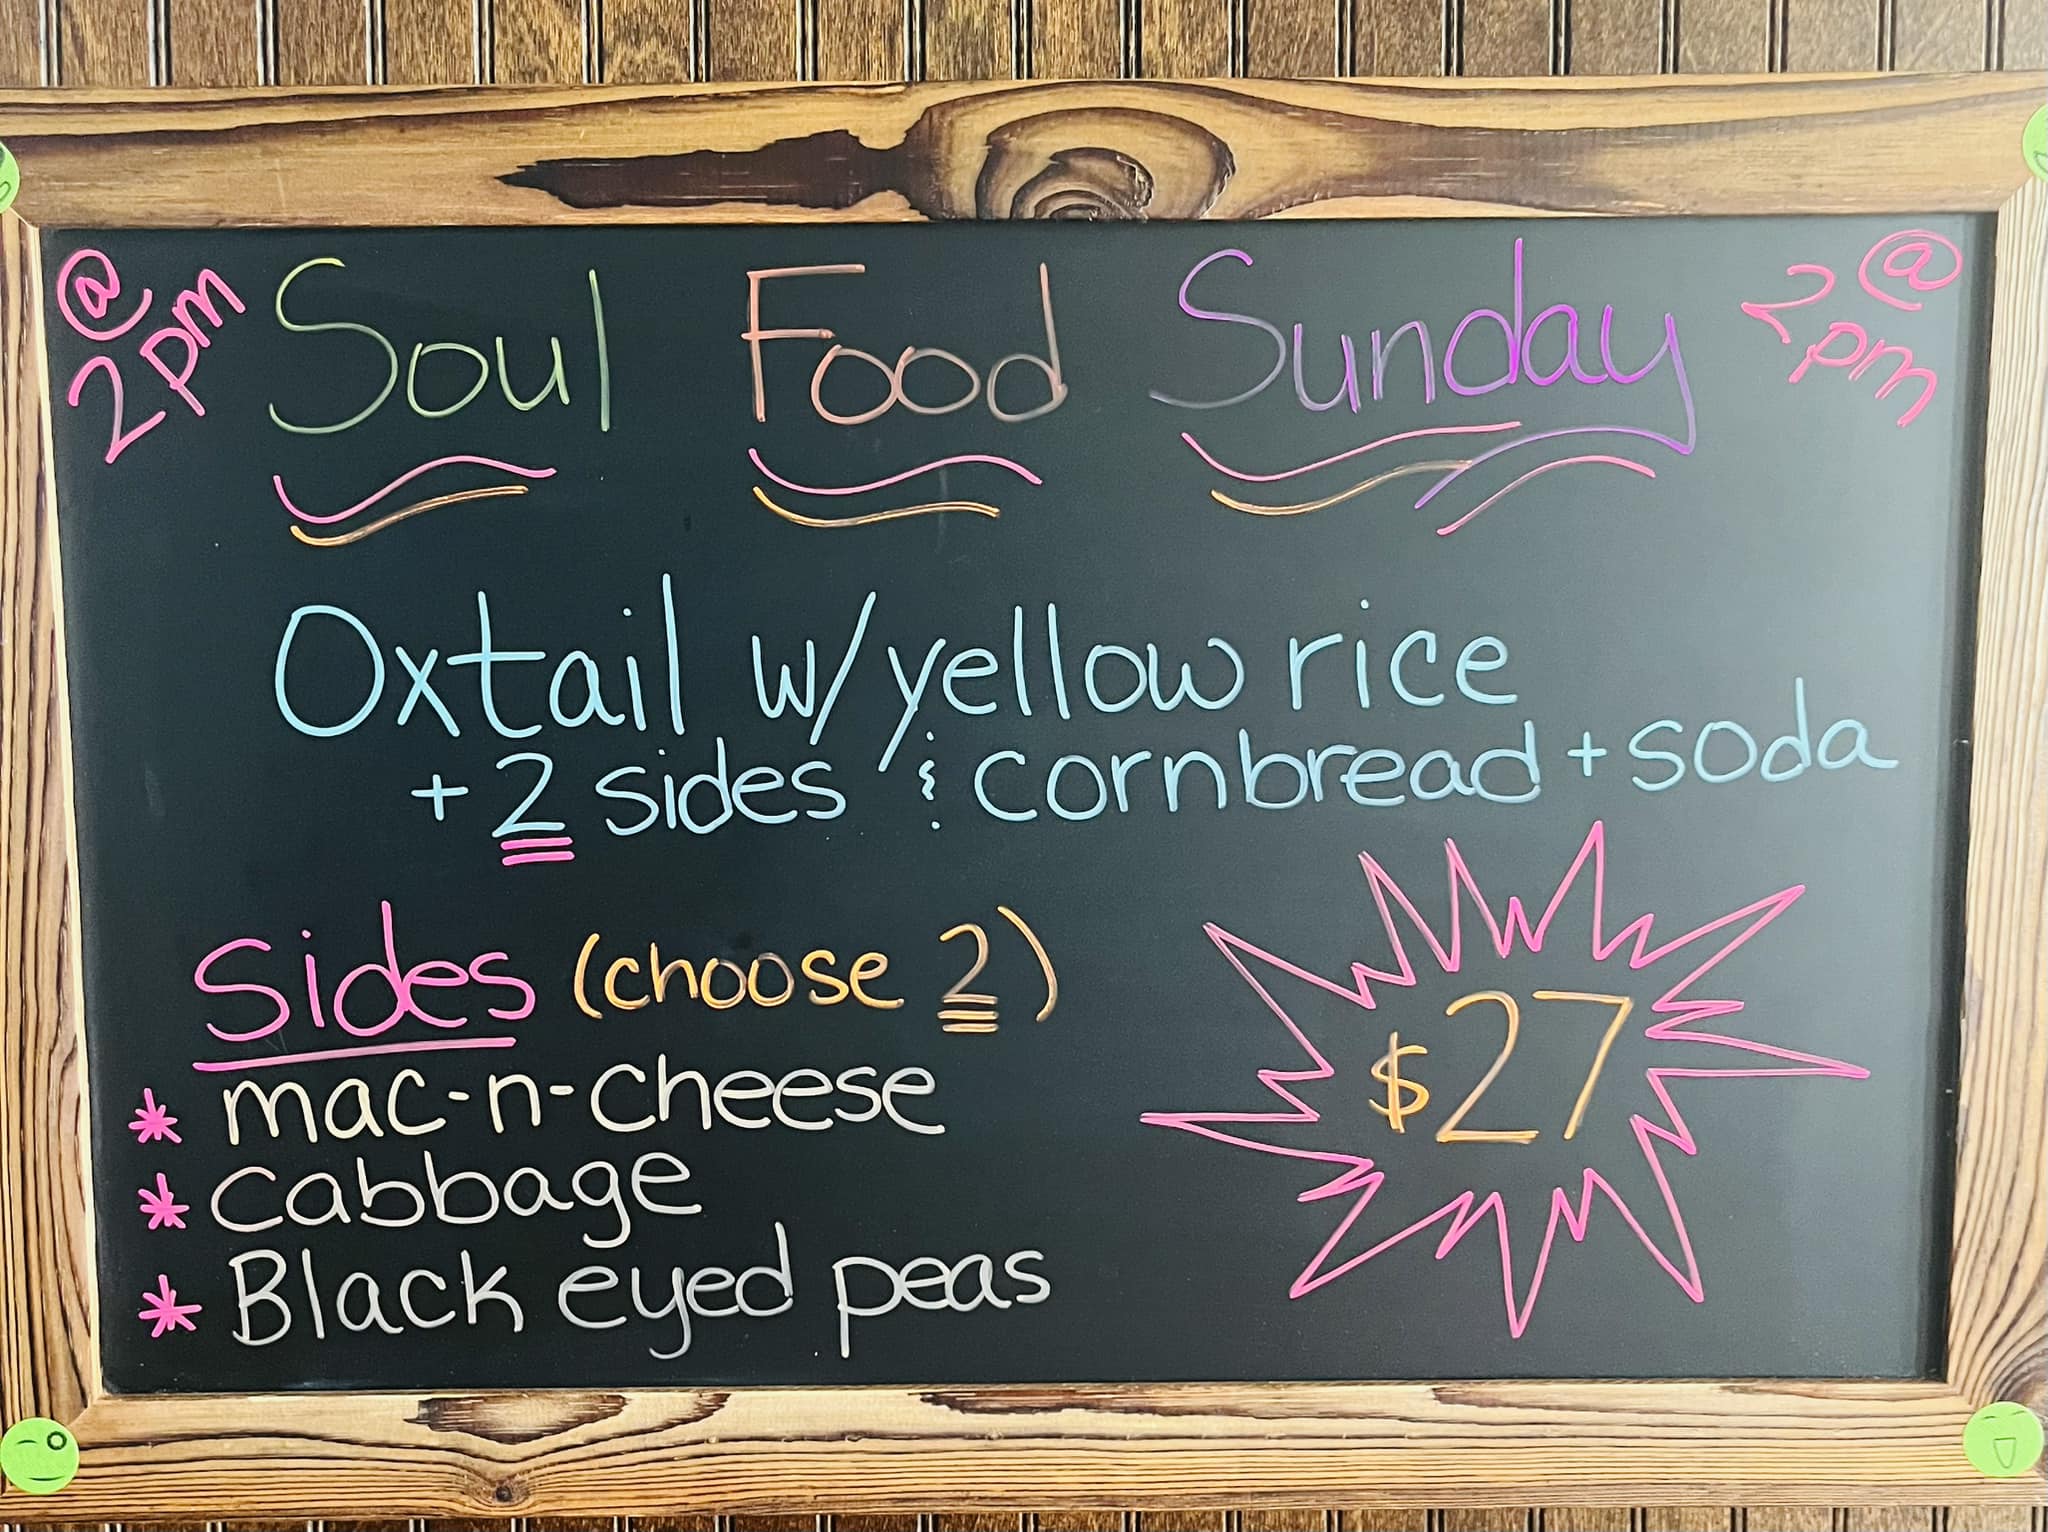 @ 2pm
Soul Food Sunday
@ 2pm
Oxtail w/yellow rice
+ 2 sides & cornbread + soda
Sides (choose 2)
* mac-n-cheese
* cabbage
* Black eyed peas
$27